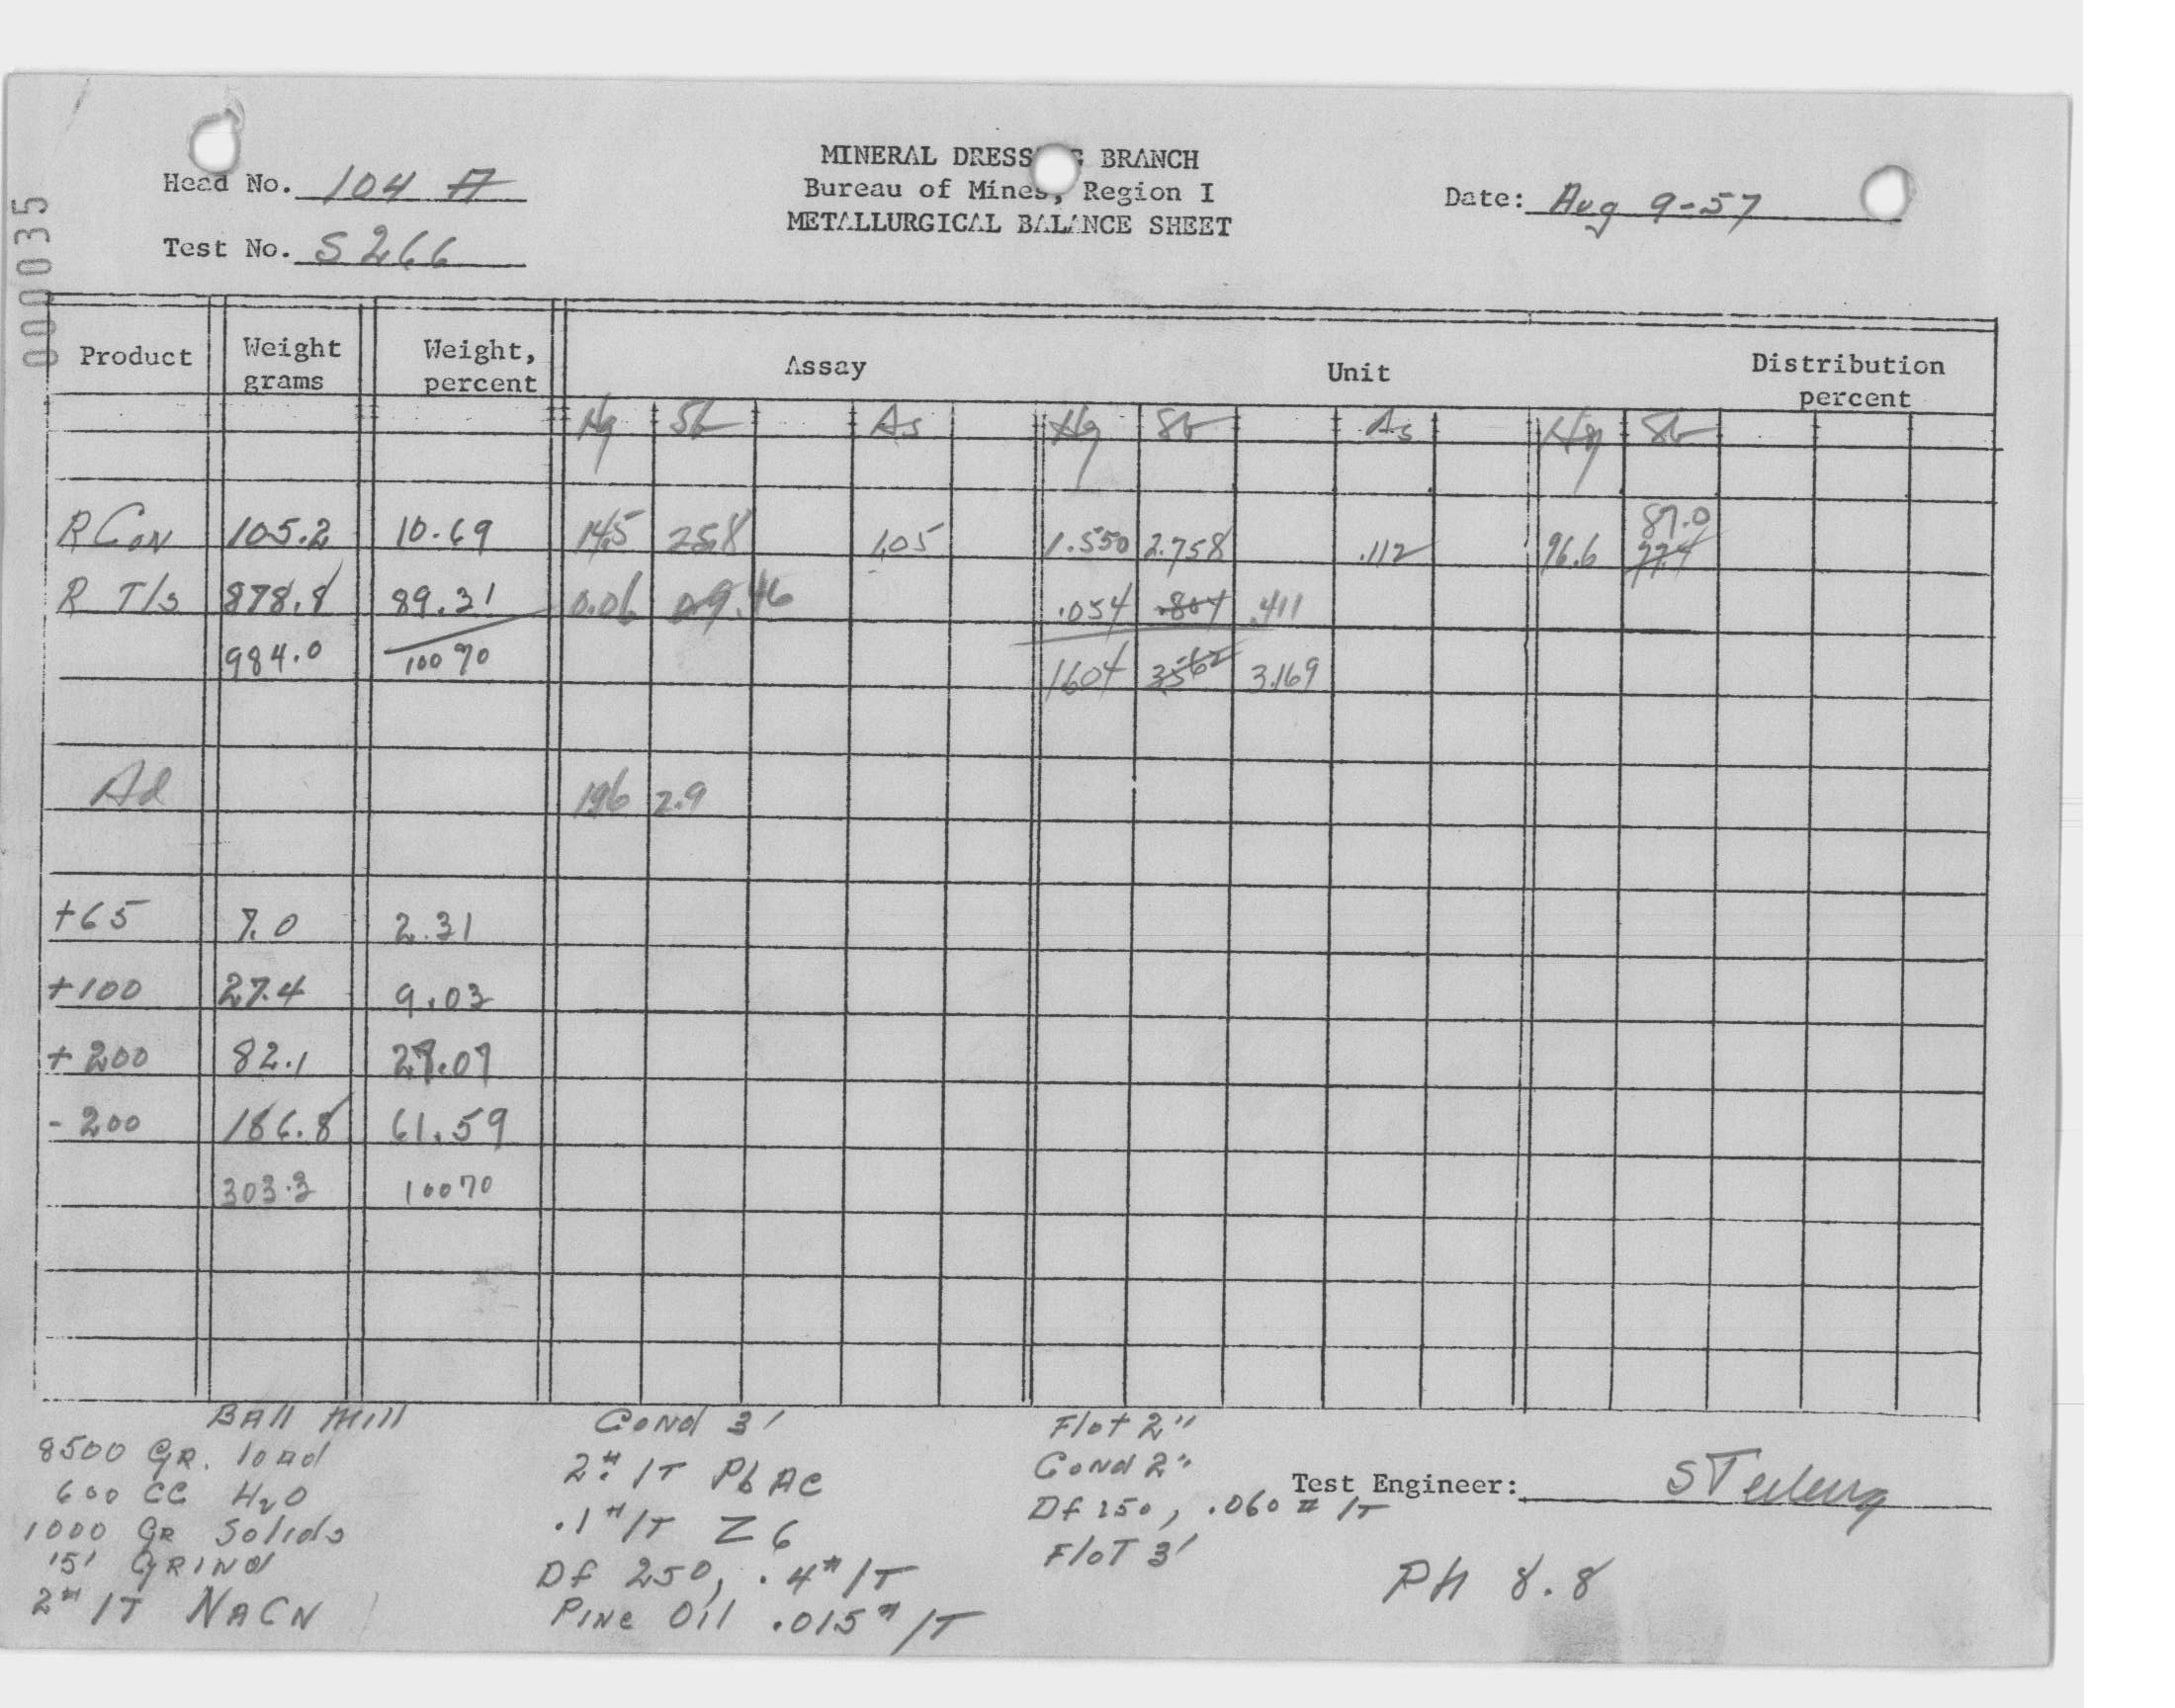 000035
MINERAL DRESS G BRANCH
Head No. 104 A
Bureau of Mines, Region I
Date: Aug 9-57
METALLURGICAL BALANCE SHEET
Test No. S266
Product Weight grams Weight, percent Assay Unit Distribution percent
Hg Sb As Hg Sb As Hg Sb
87.0
R Con 105.2 10.69 14.5 25.8 1.05 1.550 2.758 .112 96.6 77.4
R Tls 878.8 89.31 0.06 0.9 .46 .054 .804 .411
984.0 100% 1.604 3.562 3.169
Ad 1.96 2.9
+65 7.0 2.31
+100 27.4 9.03
+200 82.1 27.07
-200 186.8 61.59
303.3 100%
Ball Mill
8500 GR. load
600 CC H2O
1000 GR Solids
15' GRINd
2#/T NACN
Cond 3'
2#/T Pb AC
.1#/T Z6
Df 250, .4#/T
Pine Oil .015#/T
Flot 2"
Cond 2"
Df 250, .060#/T
Flot 3'
Test Engineer:
PH 8.8